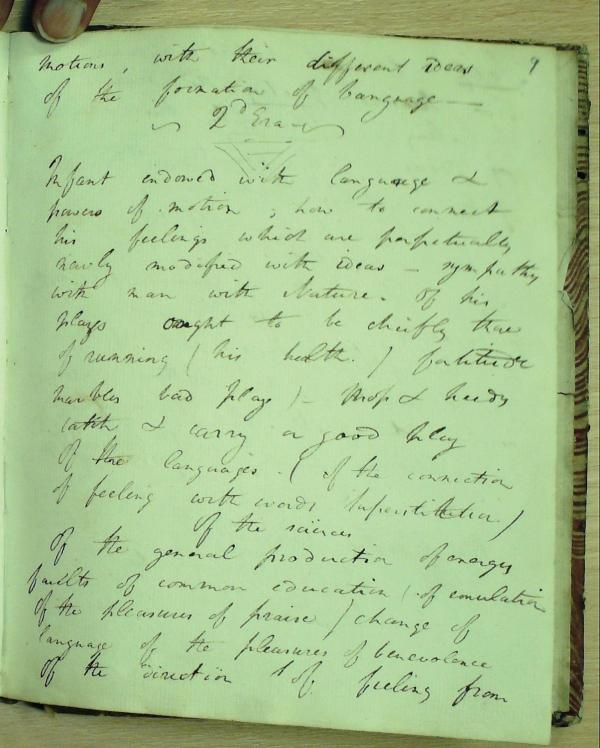 motions, with their different ideas 9
of the formation of Language —
2d Era
Infant endowed with language &
powers of motion; how to connect
his feelings which are perpetually
newly modified with ideas — sympathy
with man with Nature. Of his
plays ought to be cheifly those
of running (his health.) fortitude
marbles bad play) — &
catch & carry a good play
Of the languages. (of the connection
of feeling with words Superstition.)
Of the sciences
Of the general production of energy
faults of common education (of emulation
Of the pleasures of praise) change of
language of the pleasures of benevolence
Of the direction of feeling from